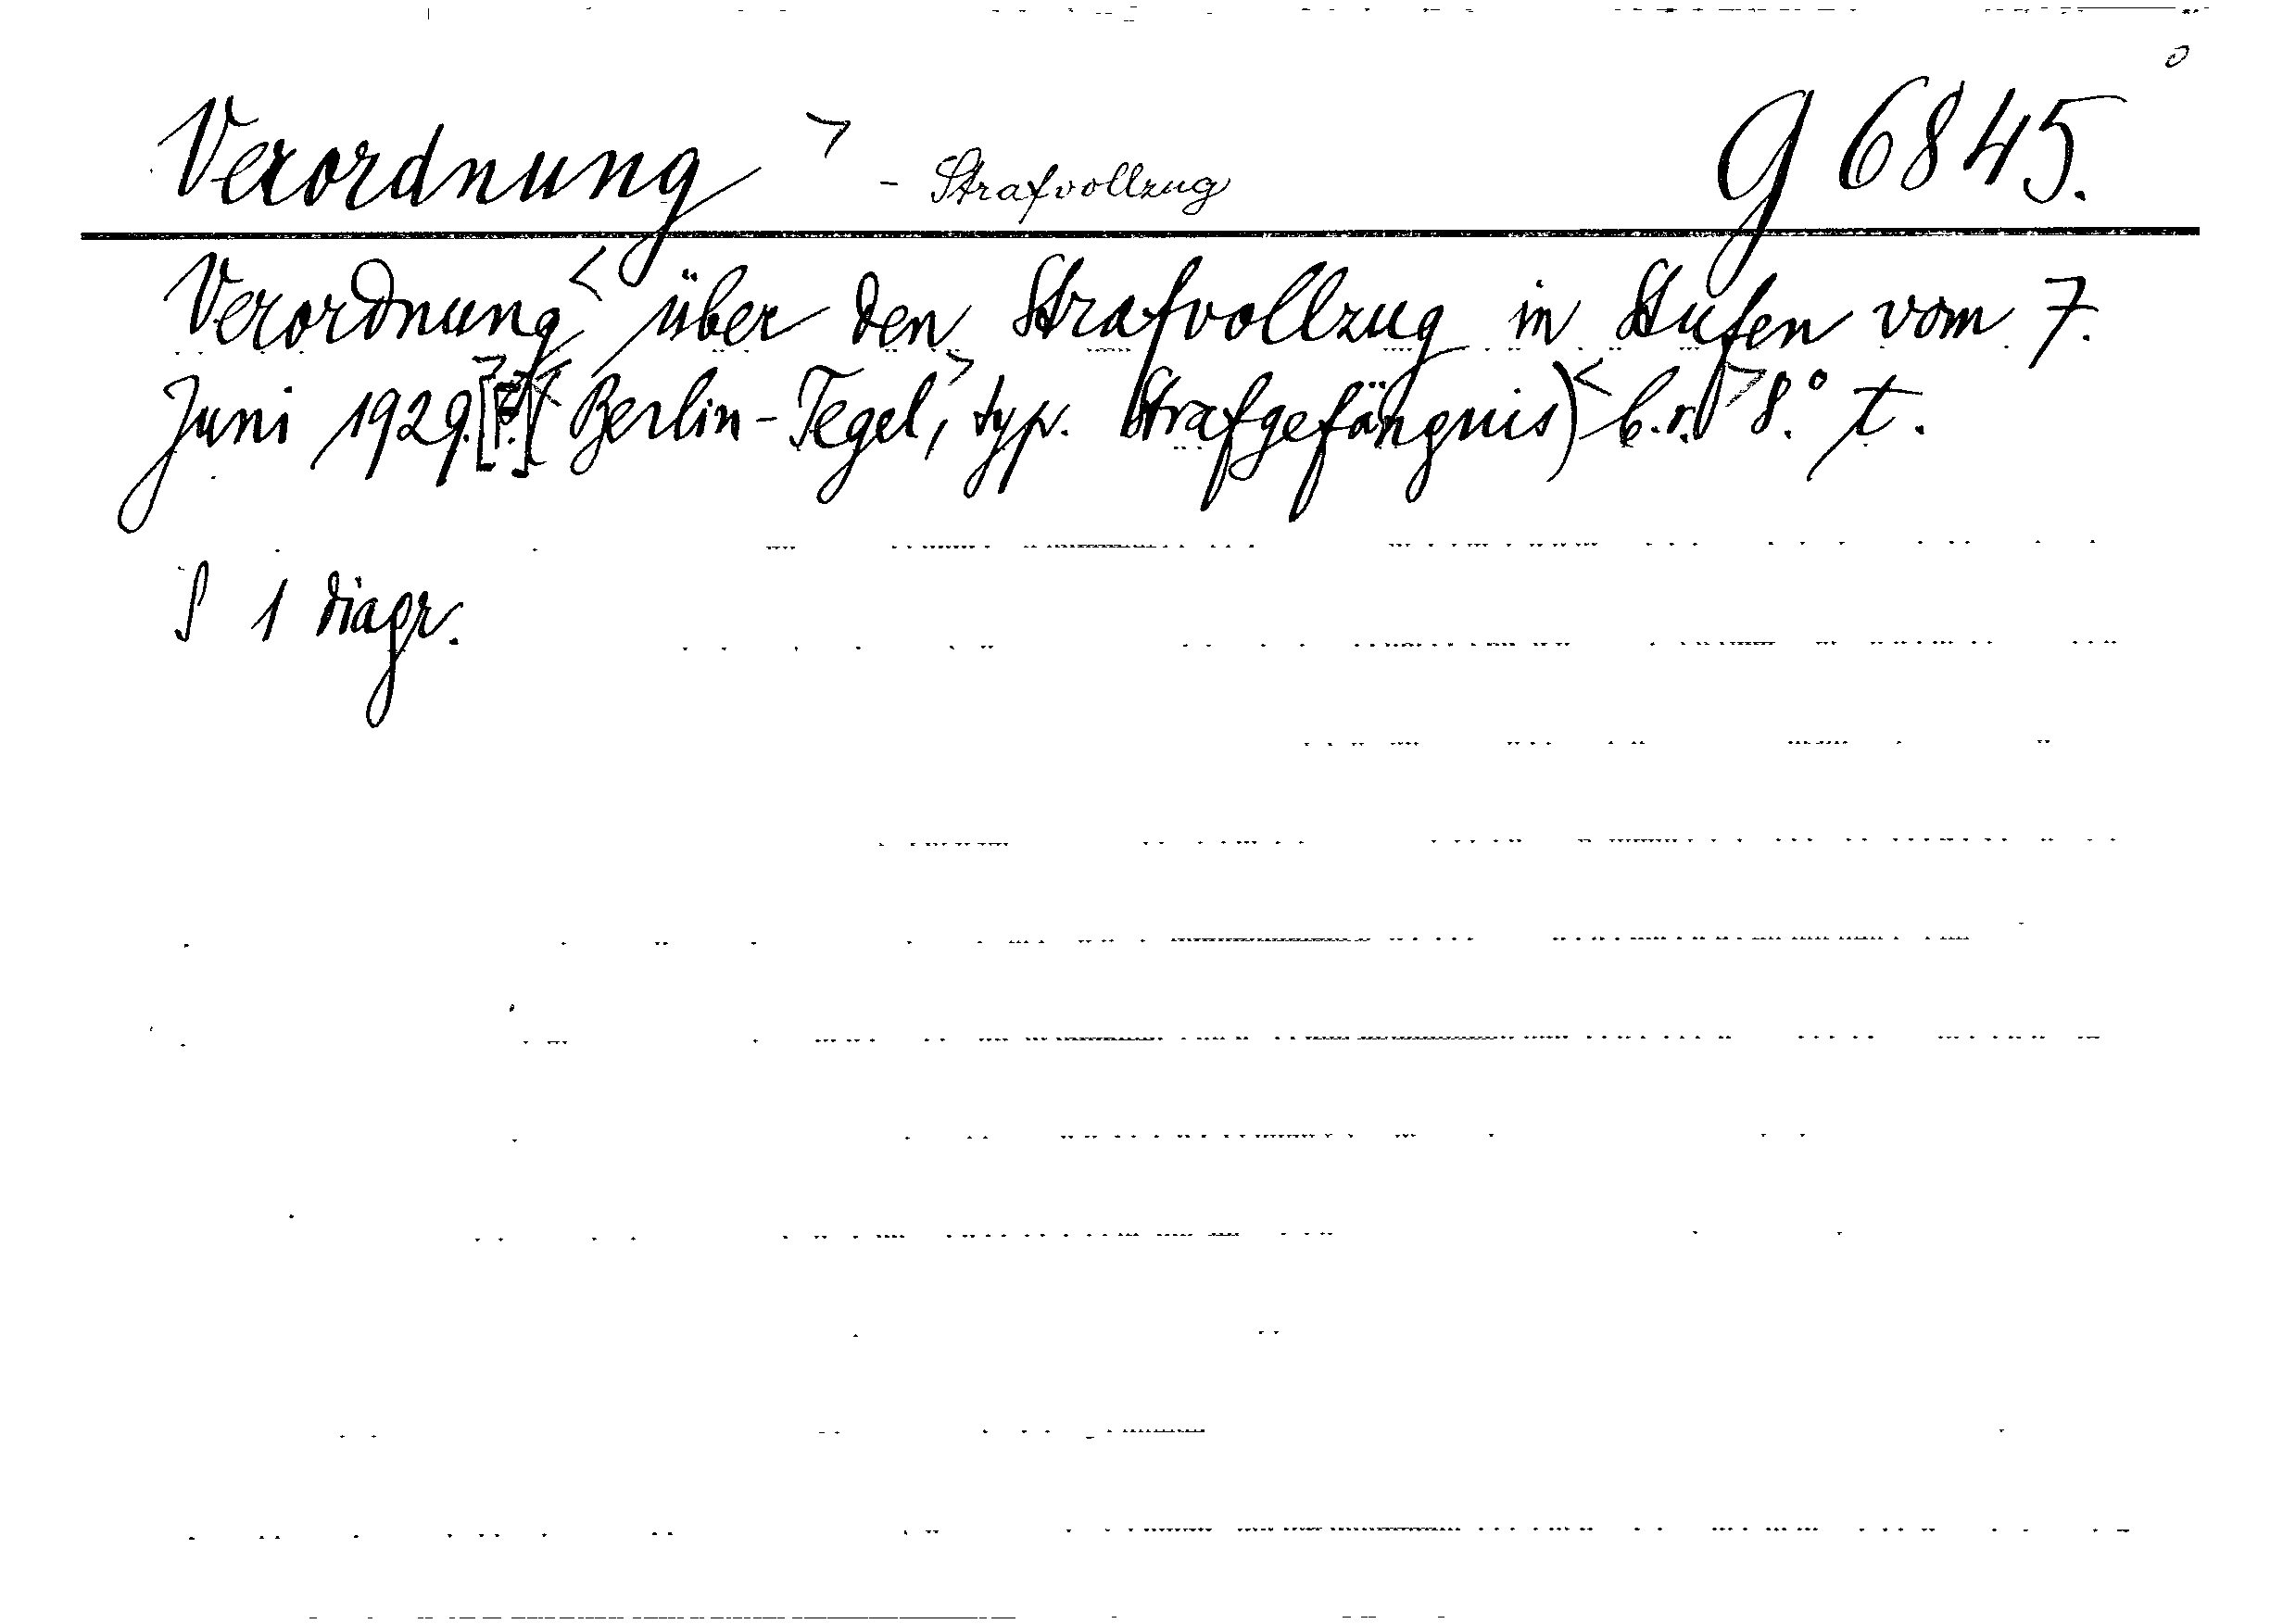 Verordnung > - Strafvollzug G 6845.
Verordnung < über den Strafvollzug in Stufen vom 7.
Juni 1929. > Berlin-Tegel, > typ. Strafgefängnis) < b.r. > 8.° t.
S 1 diagr.